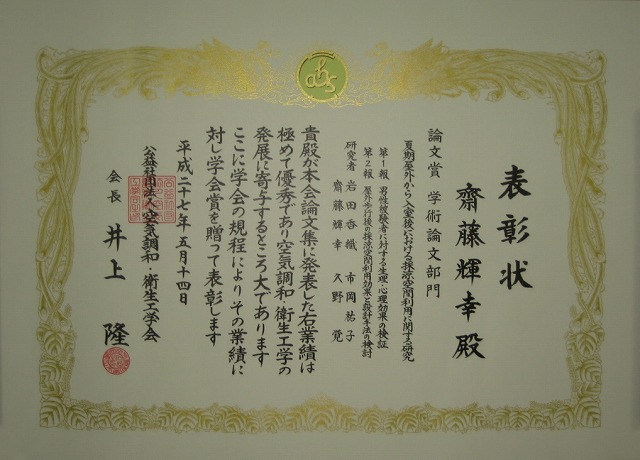 表彰状
齋藤輝幸殿
論文賞 学術論文部門
夏期屋外から入室後における採涼空間利用に関する研究
第1報 男性被験者に対する生理・心理効果の検証
第2報 屋外歩行後の採涼空間利用効果と設計手法の検討
研究者 岩田香織 市岡祐子
齋藤輝幸 久野覚
貴殿が本会論文集に発表した右業績は
極めて優秀であり空気調和・衛生工学の
発展に寄与するところ大であります
ここに学会の規程によりその業績に
対し学会賞を贈って表彰します
平成二十七年五月十四日
公益社団法人空気調和・衛生工学会
会長 井上 隆